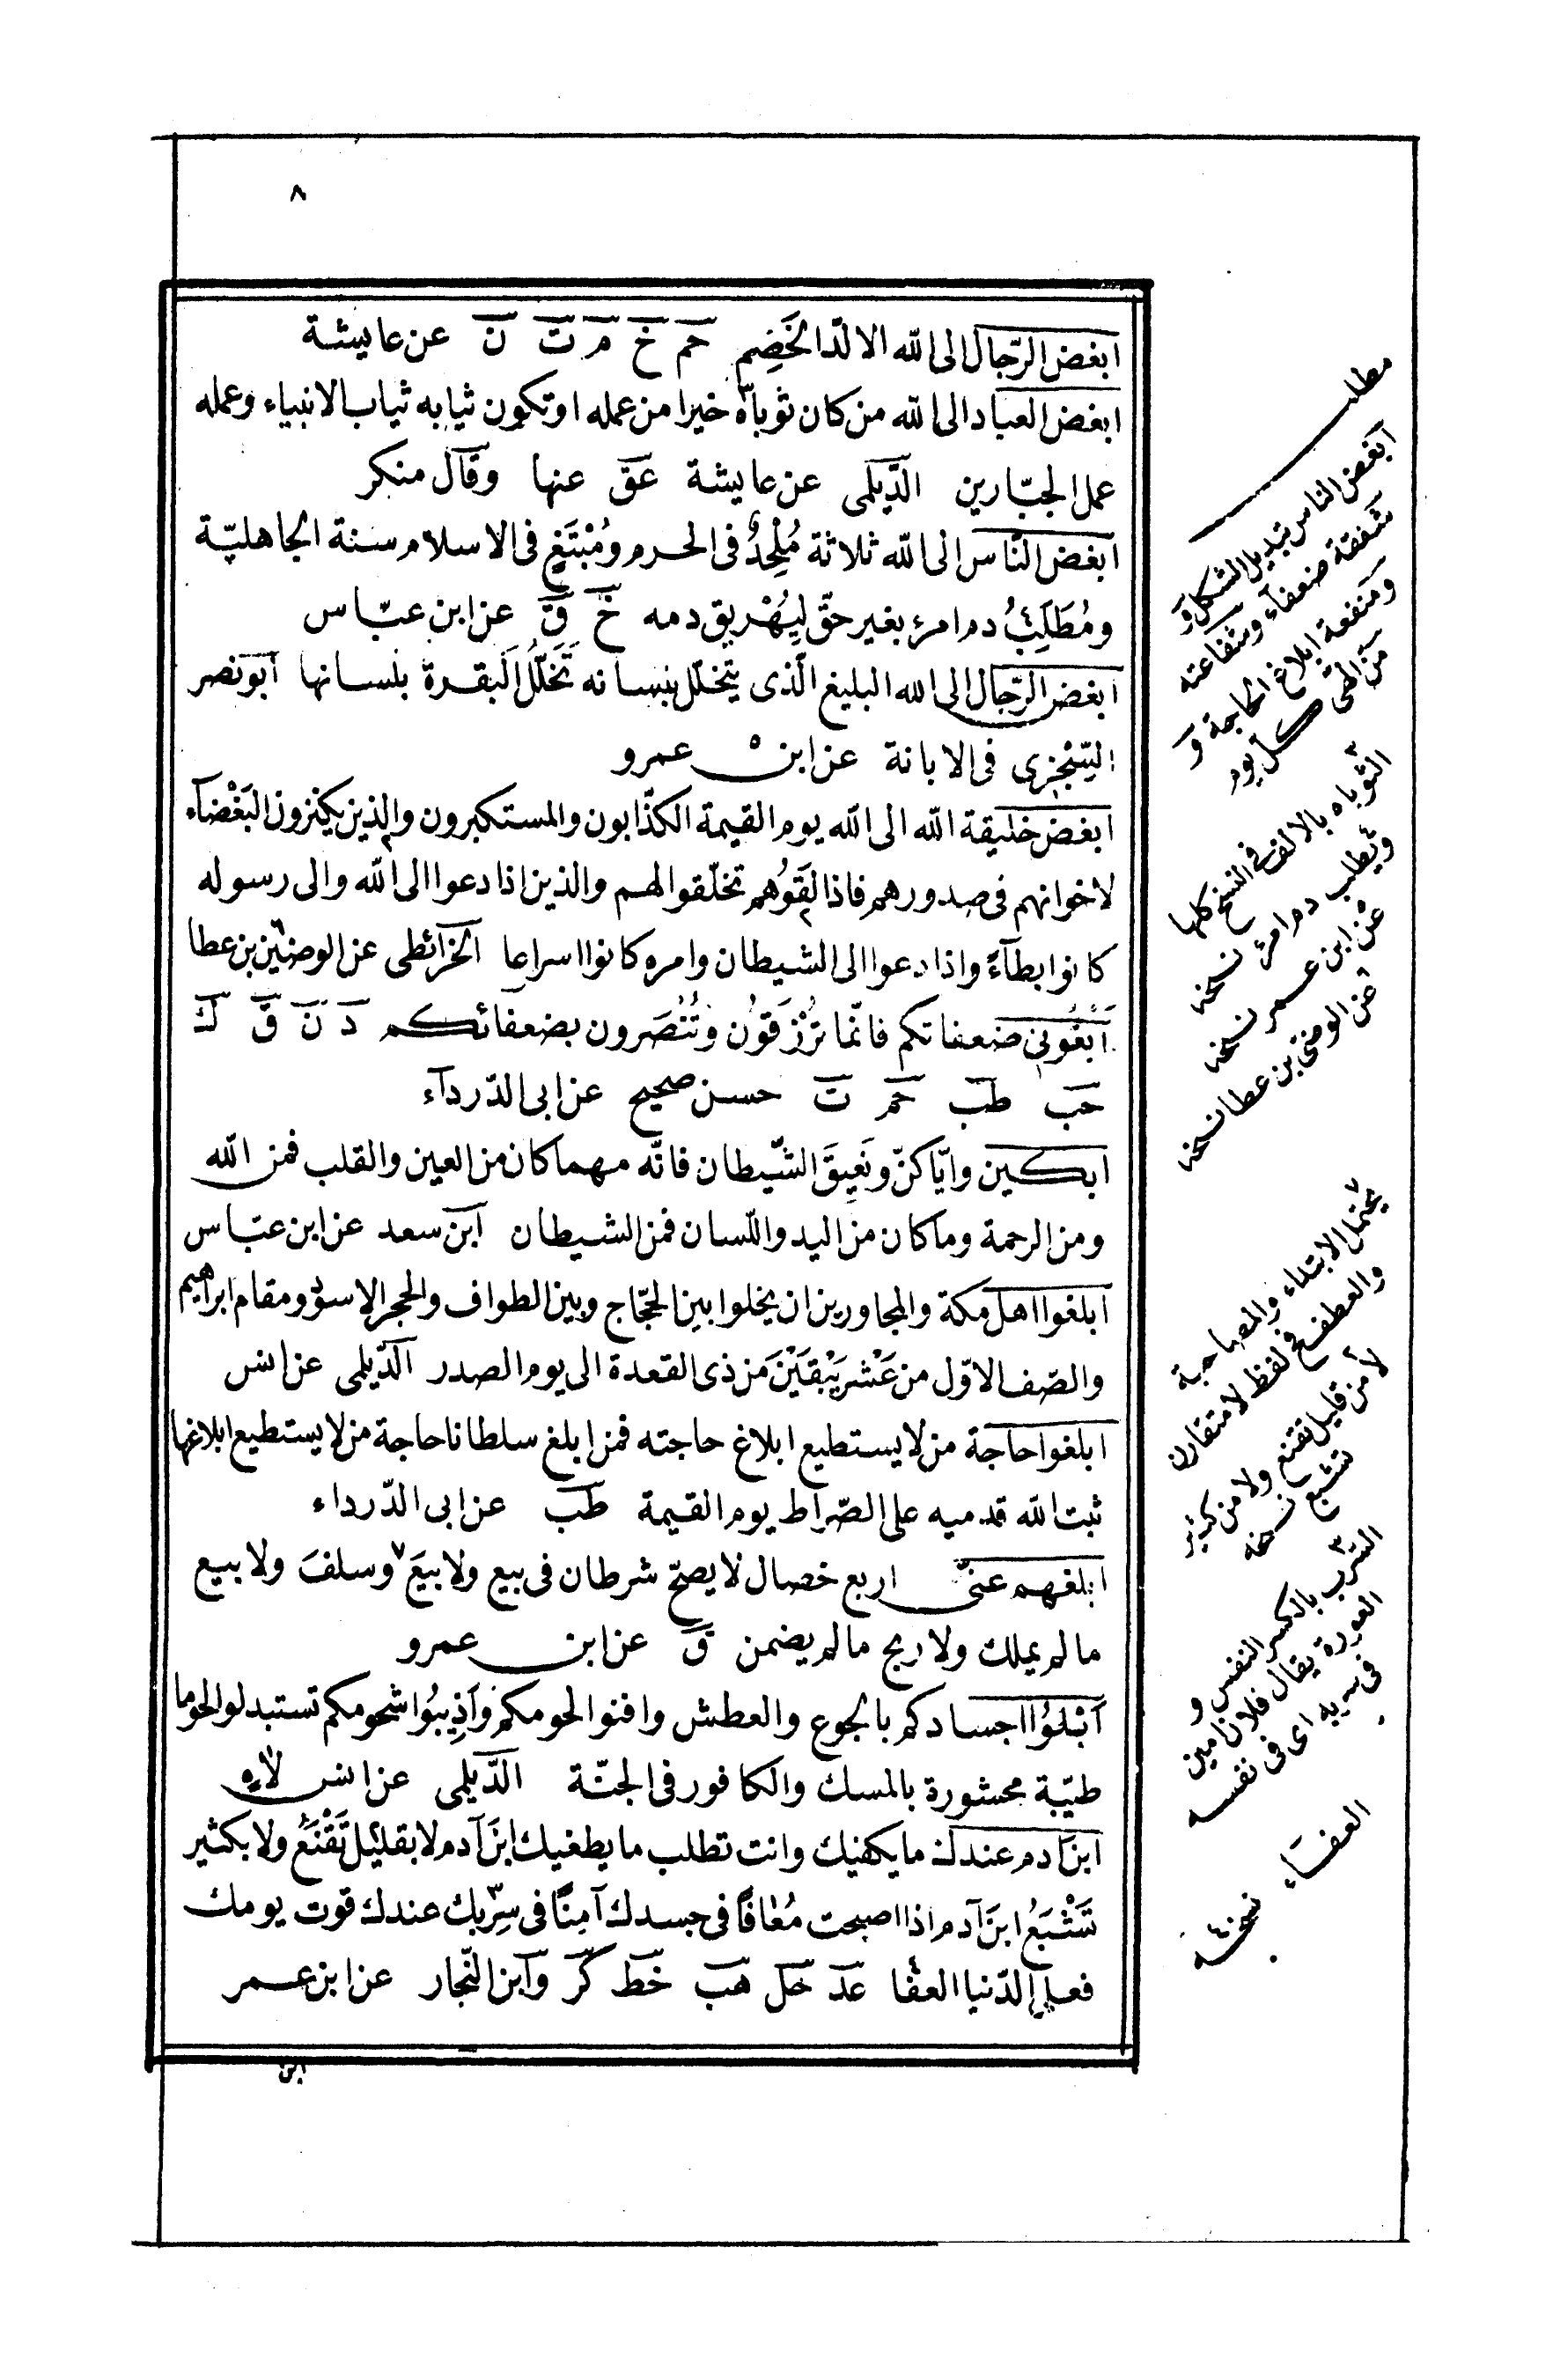 ٨
ابغض الرّجال الى الله الالدّ الخَصِم حَم خَ مَ تَ نَ عن عايشة
ابغض العباد الى الله من كان ثوباه خيرا من عمله او تكون ثيابه ثياب الانبياء وعمله
عمل الجبّارين الدّيلمى عن عايشة عَق عنها وقال منكر
ابغض النّاس الى الله ثلاثة مُلْحِدٌ فى الحرم ومُبْتَغٍ فى الاسلام سنة الجاهليّة
ومُطَلِّبُ دم امرئ بغير حقّ لِيُهْرِيق دمه خَ قَ عن ابن عبّاس
ابغض الرّجال الى الله البليغ الّذى يتخلّل بنسانه تَخَلُّلَ البقرة بلسانها ابو نصر
السِّجْزِى فى الابانة عن ابن عمرو
ابغض خليقة الله الى الله يوم القيمة الكذّابون والمستكبرون والذين يكنزون البَغْضَآء
لاخوانهم فى صدورهم فاذا لَقَوُهم تخلّقوا لهم والذين اذا دعوا الى الله والى رسوله
كانوا بطآءً واذا دعوا الى الشيطان وامره كانوا اسراعا الخرائطى عن الوضين بن عطا
اَبْغُونِى ضعفائكم فانّما تُرْزَقون وتُنْصَرون بضعفائكم دَ نَ قَ كَ
حَب طَب حَم تَ حسن صحيح عن ابى الدّردآء
ابكين وايّاكنّ ونَعِيقَ الشّيطان فانّه مهما كان من العين والقلب فمن الله
ومن الرحمة وما كان من اليد واللّسان فمن الشيطان ابن سعد عن ابن عبّاس
ابلغوا اهل مكة والمجاورين ان يخلوا بين الحجّاج وبين الطواف والحجر الاسود ومقام ابراهيم
والصّف الاوّل من عَشْرٍ يَبْقَيْنَ من ذى القعدة الى يوم الصدر الدّيلمى عن انس
ابلغوا حاجة من لا يستطيع ابلاغ حاجته فمن ابلغ سلطانا حاجة من لا يستطيع ابلاغها
ثبت الله قدميه على الصّراط يوم القيمة طَب عن ابى الدّرداء
ابلغهم عنّى اربع خصال لا يصحّ شرطان فى بيع ولا بيعَ ٧ وسلفَ ولا بيع
ما لم يملك ولا ربح ما لم يضمن قَ عن ابن عمرو
اَبْلُوْا اجسادكم بالجوع والعطش وافنوا لحومكم واَذِيبُوا شحومكم تستبدلوا لحوما
طيّبة محشورة بالمسك والكافور فى الجنّة الدّيلمى عن انس
ابن ادم عندك ما يكفيك وانت تطلب ما يطغيك ابنَ آدم لا بقليل تَقْنَعُ ولا بكثير
تَشْبَعُ ابنَ آدم اذا اصبحت مُعافًا فى جسدك آمِنًا فى سِرْبك عندك قوت يومك
فعلى الدّنيا العفا عَد حَل هَب خَط كَر وابن النّجار عن ابن عمر
ابن
مطلب
ابغض الناس تبديل الشكل و
شفقة ضعفاء وشفاعته
ومنفعة ابلاغ الحاجة و
كل يوم
الثوباه بالالف فى النسخ كلها
ويطلب دم امرئ نسخه
عن ابن عمر نسخه
عن الوضى بن عطا نسخه
٧ يحتمل الابتداء والمصاحبة
والعطف فى لفظ لا متقارن
لا من قليل تقنع ولا من كثير
تشبع نسخه
السرب بالكسر النفس و
العورة يقال فلان امين
فى سربه اى فى نفسه
العفاء نسخه